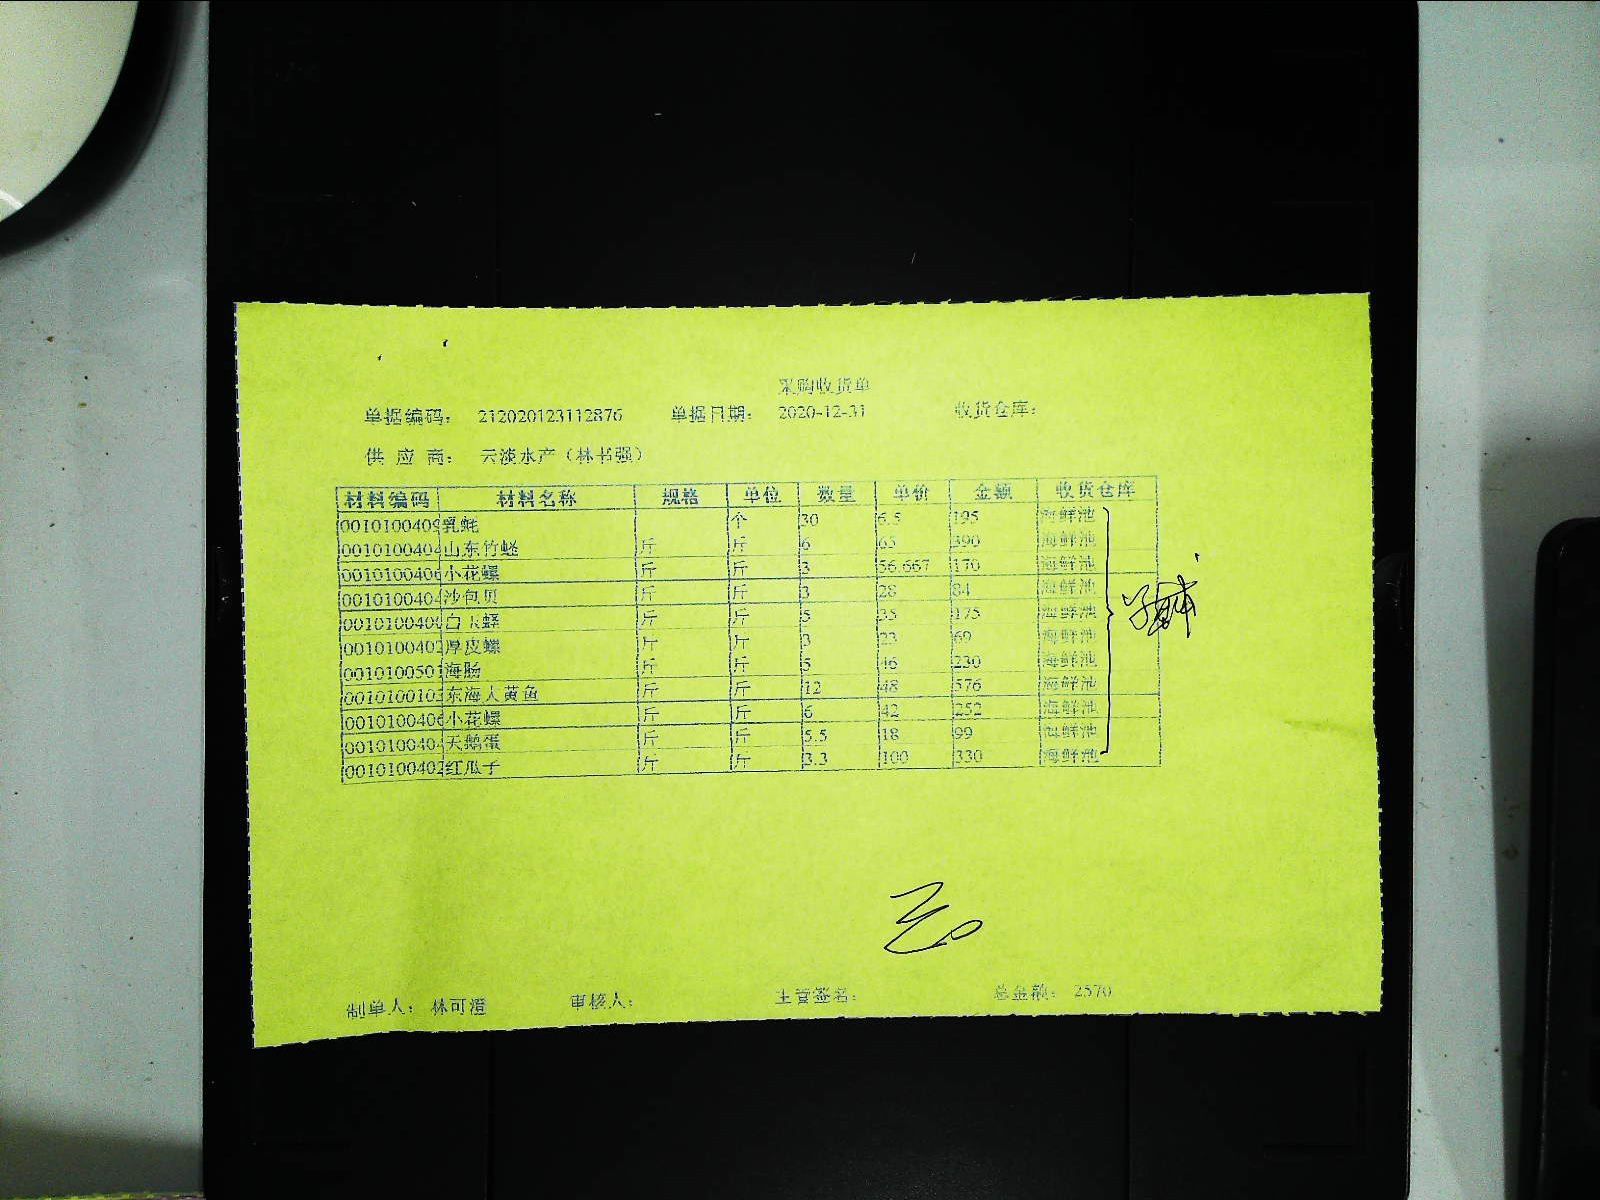 采购收货单
单据编码： 212020123112876 单据日期： 2020-12-31 收货仓库：
供 应 商： 云淡水产（林书强）
材料编码 材料名称 规格 单位 数量 单价 金额 收货仓库
0010100409 乳蚝 个 30 6.5 195 海鲜池
0010100404 山东竹蛏 斤 斤 6 65 390 海鲜池
0010100406 小花螺 斤 斤 3 56.667 170 海鲜池
0010100404 沙包贝 斤 斤 3 28 84 海鲜池
001010040 白玉蛏 斤 斤 5 35 175 海鲜池
0010100402 厚皮螺 斤 斤 3 23 69 海鲜池
0010100501 海肠 斤 斤 5 46 230 海鲜池
0010100103 东海大黄鱼 斤 斤 12 48 576 海鲜池
0010100406 小花螺 斤 斤 6 42 252 海鲜池
0010100404 天鹅蛋 斤 斤 5.5 18 99 海鲜池
0010100402 红瓜子 斤 斤 3.3 100 330 海鲜池
制单人： 林可澄 审核人： 主管签名： 总金额： 2570